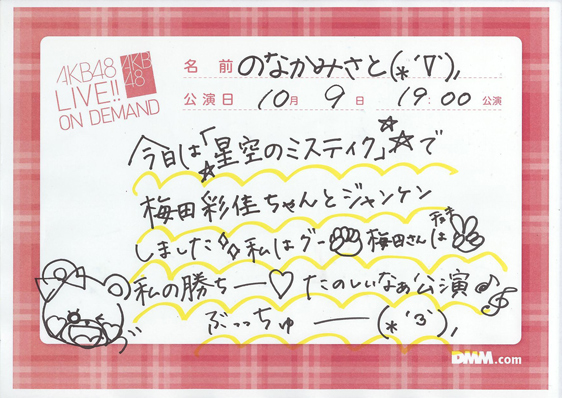 AKB48
LIVE!!
ON DEMAND
AKB
48
名 前 のなかみさと(*´∇`),
公演日 10月 9日 19:00 公演
今日は「星空のミスティク」☆で
梅田彩佳ちゃんとジャンケン
しました 私はグー 梅田さんはチョキ
私の勝ちー♡ たのしいなぁ公演♪
ぶっちゅ ー (*´3`),
DMM.com